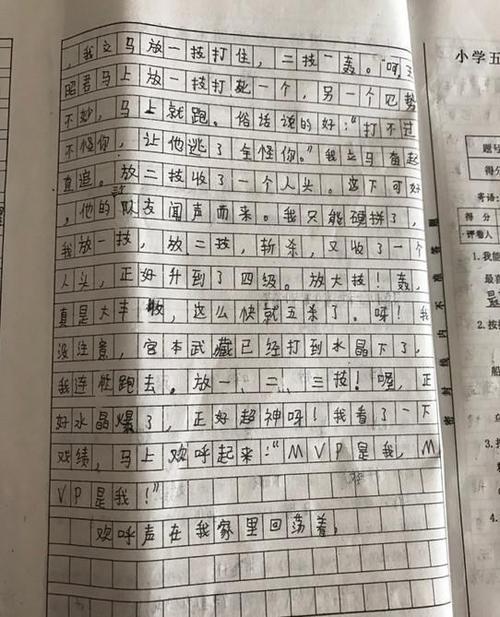 ，我立马放一技打住，二技一轰。呵王
昭君马上放一技打死一个，另一个见势
不妙，马上就跑。俗话说的好：“打不过
不怪你，让他逃了全怪你。”我立马奋起
直追。放二技收了一个人头。这下可好
，他的队友闻声而来。我只能硬拼了，
我放一技，放二技，斩杀，又收了一个
人头，正好升到了四级。放大技！轰，
真是大丰收，这么快就五杀了。呀！我
没注意，宫本武藏已经打到水晶下了，
我连忙跑去。放一！二！三技！喔，正
好水晶爆了，正好超神呀！我看了一下
戏绩，马上欢呼起来：“MVP是我，M
VP是我！”
欢呼声在我家里回荡着。
小学五
题号
得分
考语：
得分
评卷人
1.我能
最喜
2.按
船
3.
1.
密封线内不准答题